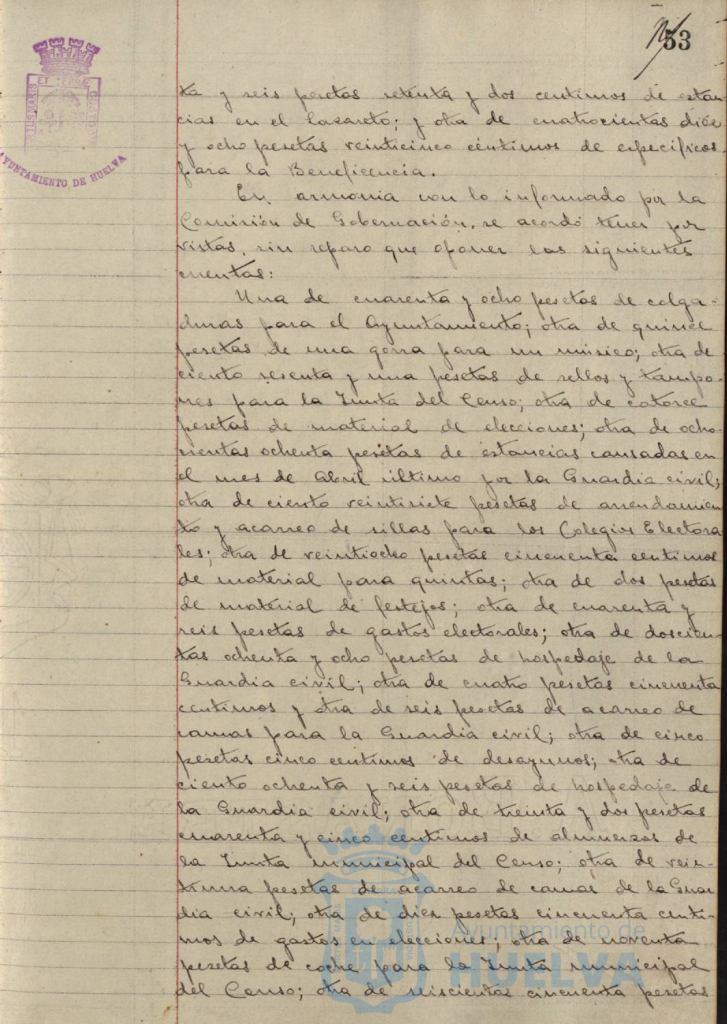 53
AYUNTAMIENTO DE HUELVA
ta y seis pesetas setenta y dos centimos de estan
cias en el lazareto; y otra de cuatrocientas diez
y ocho pesetas veinticinco centimos de especificos
para la Beneficencia.
En armonia con lo informado por la
Comisión de Gobernación, se acordó tener por
vistas, sin reparo que oponer las siguientes
cuentas:
Una de cuarenta y ocho pesetas de colga-
duras para el Ayuntamiento; otra de quince
pesetas de una gorra para un músico; otra de
ciento sesenta y una pesetas de sellos y tampo-
nes para la Junta del Censo; otra de catorce
pesetas de material de elecciones; otra de ocho-
cientas ochenta pesetas de estancias causadas en
el mes de Abril último por la Guardia civil;
otra de ciento veintisiete pesetas de arrendamien
to y acarreo de sillas para los Colegios Electora
les; otra de veintiocho pesetas cincuenta centimos
de material para quintas; otra de dos pesetas
de material de festejos; otra de cuarenta y
seis pesetas de gastos electorales; otra de doscien-
tas ochenta y ocho pesetas de hospedaje de la
Guardia civil; otra de cuatro pesetas cincuenta
centimos y otra de seis pesetas de acarreo de
camas para la Guardia civil; otra de cinco
pesetas cinco centimos de desayunos; otra de
ciento ochenta y seis pesetas de hospedaje de
la Guardia civil; otra de treinta y dos pesetas
cuarenta y cinco centimos de almuerzos de
la Junta municipal del Censo; otra de vein-
tiuna pesetas de acarreo de camas de la Guar
dia civil; otra de diez pesetas cincuenta centi-
mos de gastos en elecciones; otra de noventa
pesetas de coche para la Junta municipal
del Censo; otra de seiscientas cincuenta pesetas
Ayuntamiento de
HUELVA